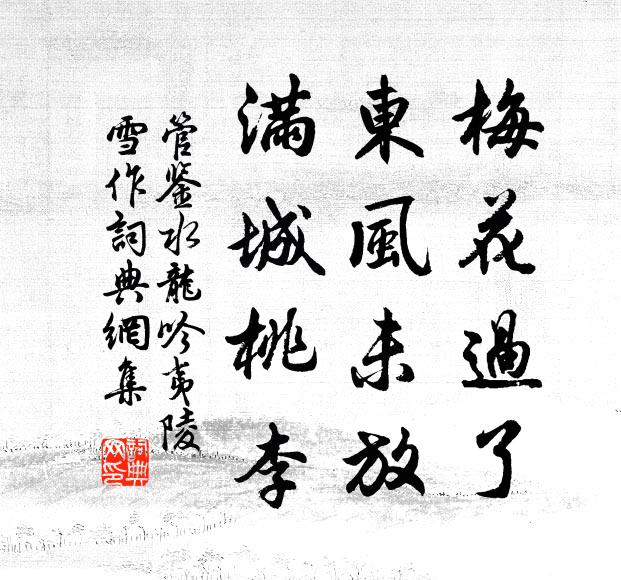 梅花過了
東風未放
滿城桃李
管鉴水龍吟夷陵
雪作詞典網集
詞典
网印